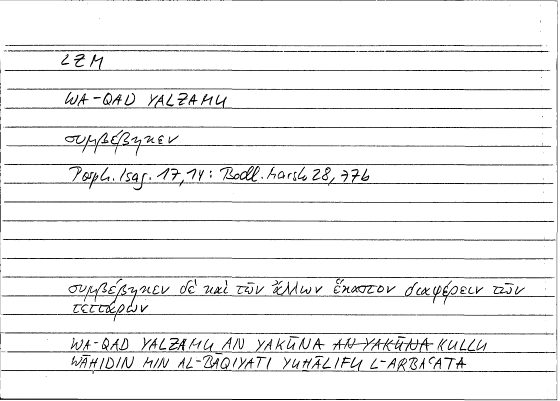 LZM
WA-QAD YALZAMU
συμβέβηκεν
Porph. Isag. 17,14: Bodl. Marsh 28, 37b
συμβέβηκεν δὲ καὶ τῶν ἄλλων ἕκαστον διαφέρειν τῶν
τεττάρων
WA-QAD YALZAMU AN YAKŪNA AN YAKŪNA KULLU
WĀḤIDIN MIN AL-BĀQIYATI YUḪĀLIFU L-ARBAʿATA